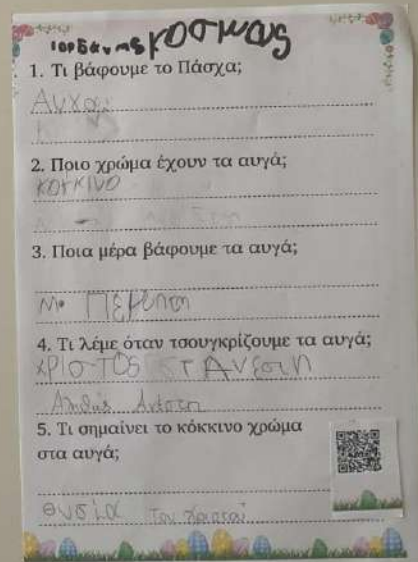 ιορδανης κοσμας
1. Τι βάφουμε το Πάσχα;
Αυχα
2. Ποιο χρώμα έχουν τα αυγά;
κοκκινο
3. Ποια μέρα βάφουμε τα αυγά;
Μ. Πεμπτη
4. Τι λέμε όταν τσουγκρίζουμε τα αυγά;
ΧΡΙσΤΟς
Αληθώς Ανέστη
5. Τι σημαίνει το κόκκινο χρώμα
στα αυγά;
θυσία του Χριστού